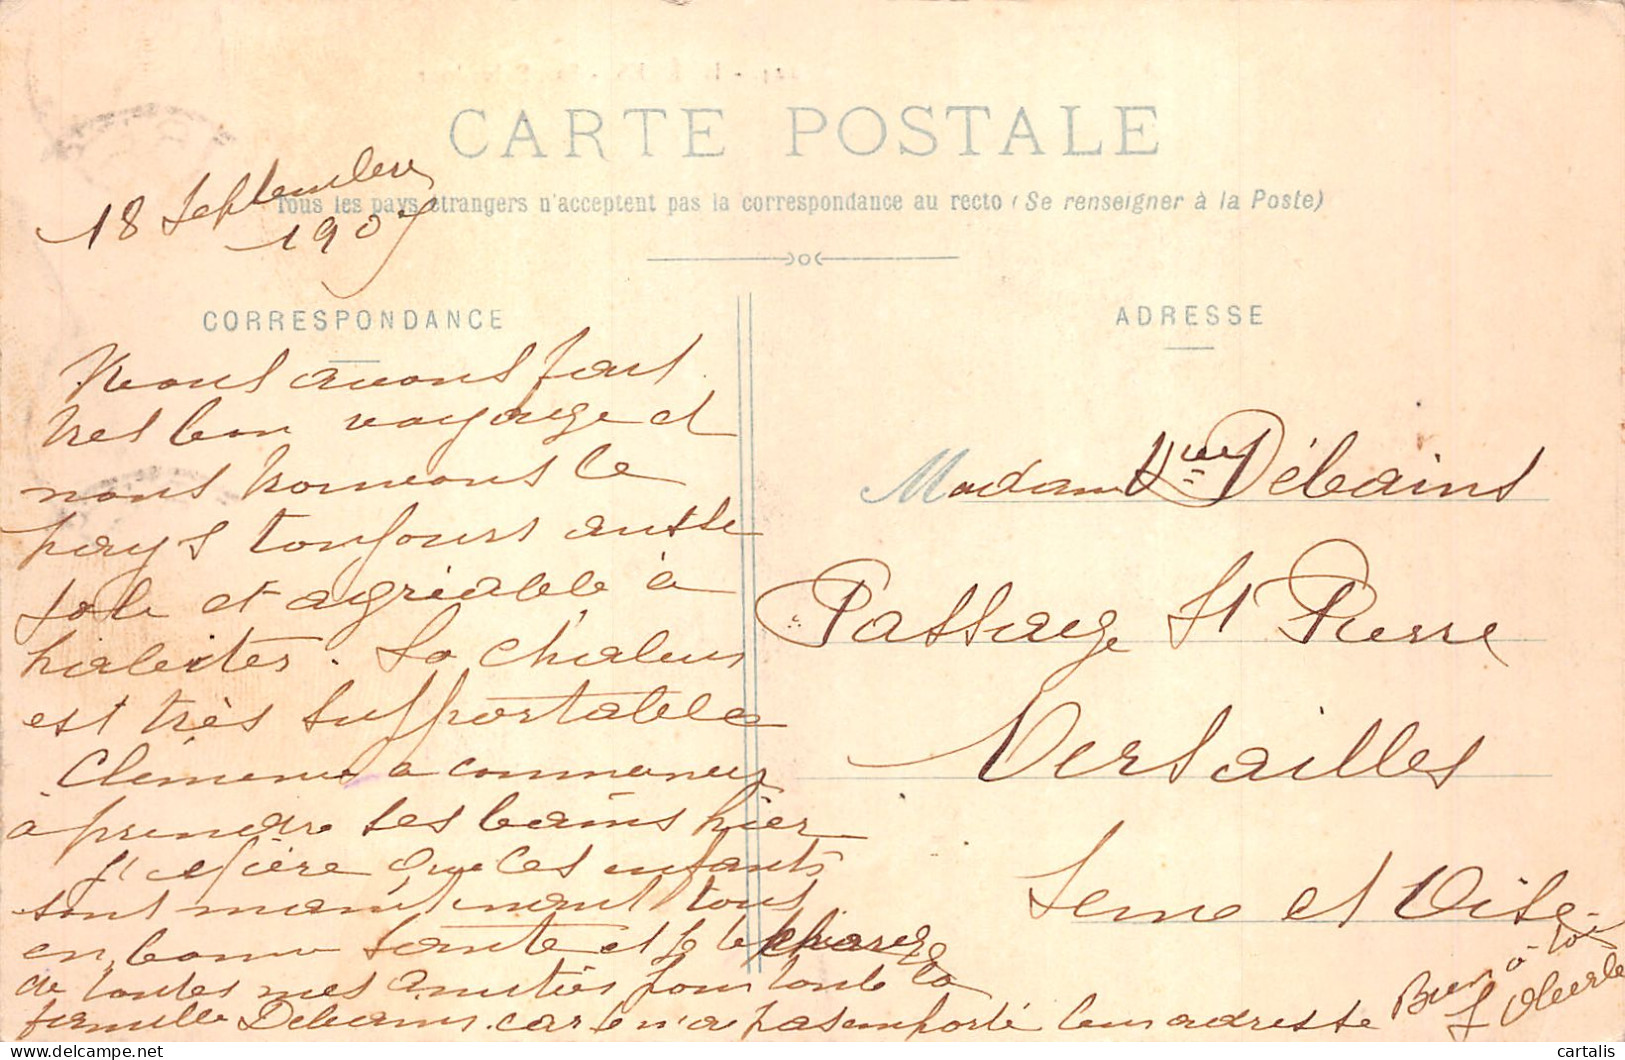 CARTE POSTALE
Tous les pays étrangers n'acceptent pas la correspondance au recto (Se renseigner à la Poste)
18 Septembre
1907
CORRESPONDANCE
Nous avons fait
très bon voyage et
nous trouvons le
pays toujours aussi
joli et agréable à
habiter. La chaleur
est très supportable
Clémence a commencé
à prendre ses bains hier
J'espère que les enfants
sont maintenant tous
en bonne santé et je te charge
de toutes mes amitiés pour toute la
famille Débains car je n'ai pas emporté leur adresse
Bien à toi
ADRESSE
Madame Vve Débains
Passage St Pierre
Versailles
Seine et Oise
cartalis